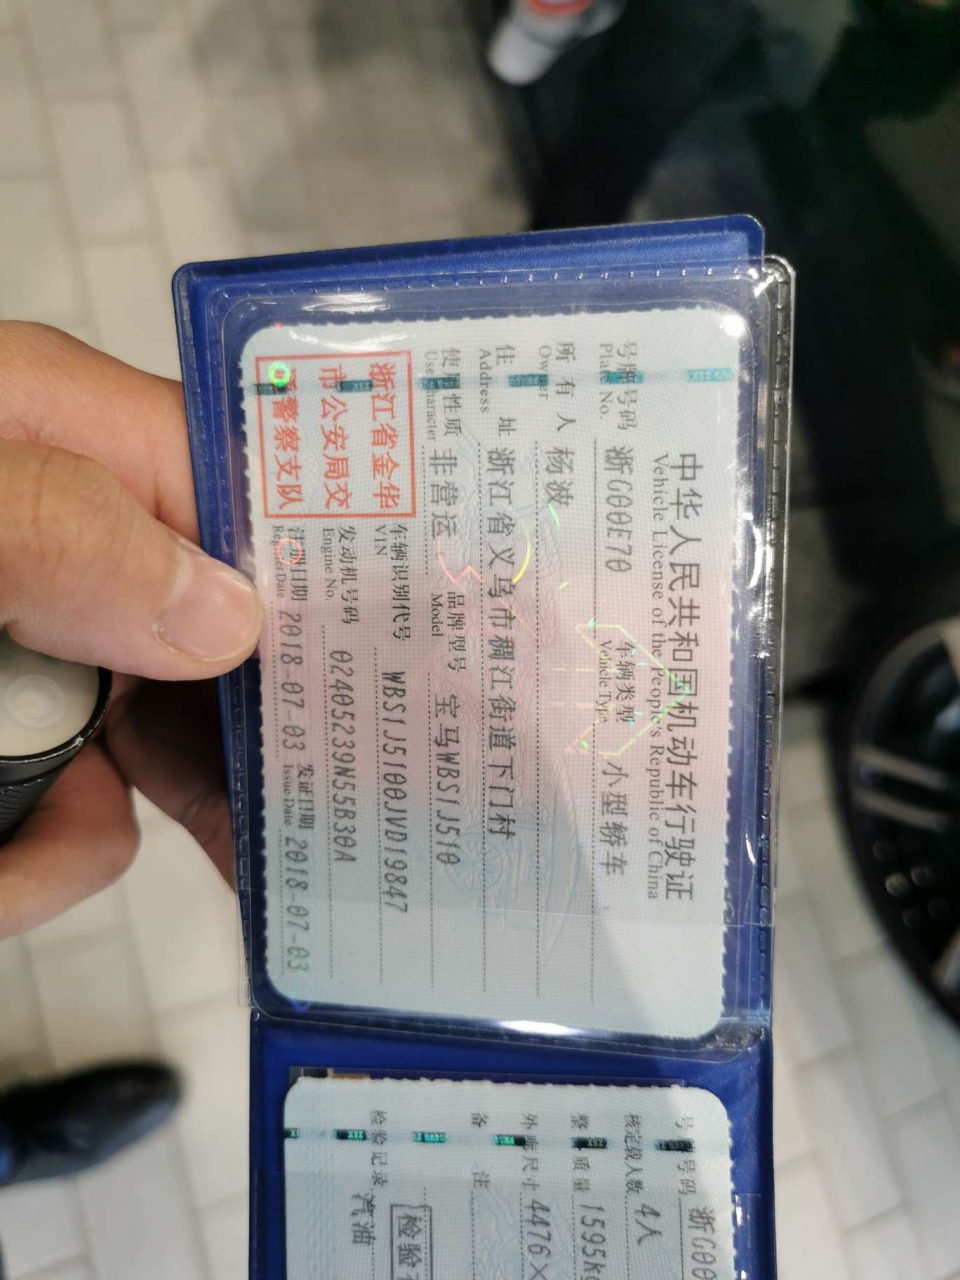 中华人民共和国机动车行驶证
Vehicle License of the People's Republic of China
号牌号码 浙G00E70 车辆类型 小型轿车
Plate No. Vehicle Type
所有人 杨波
Owner
住址 浙江省义乌市稠江街道下门村
Address
使用性质 非营运 品牌型号 宝马WBS1J510
Use Character Model
浙江省金华
市公安局交
通警察支队
车辆识别代号 WBS1J5100JVD19847
VIN
发动机号码 02405239N55B30A
Engine No.
注册日期 2018-07-03 发证日期 2018-07-03
Register Date Issue Date
号牌号码 浙G00
核定载人数 4人
整备质量 1595kg
外廓尺寸 4476×
备注
检验记录
汽油
检验